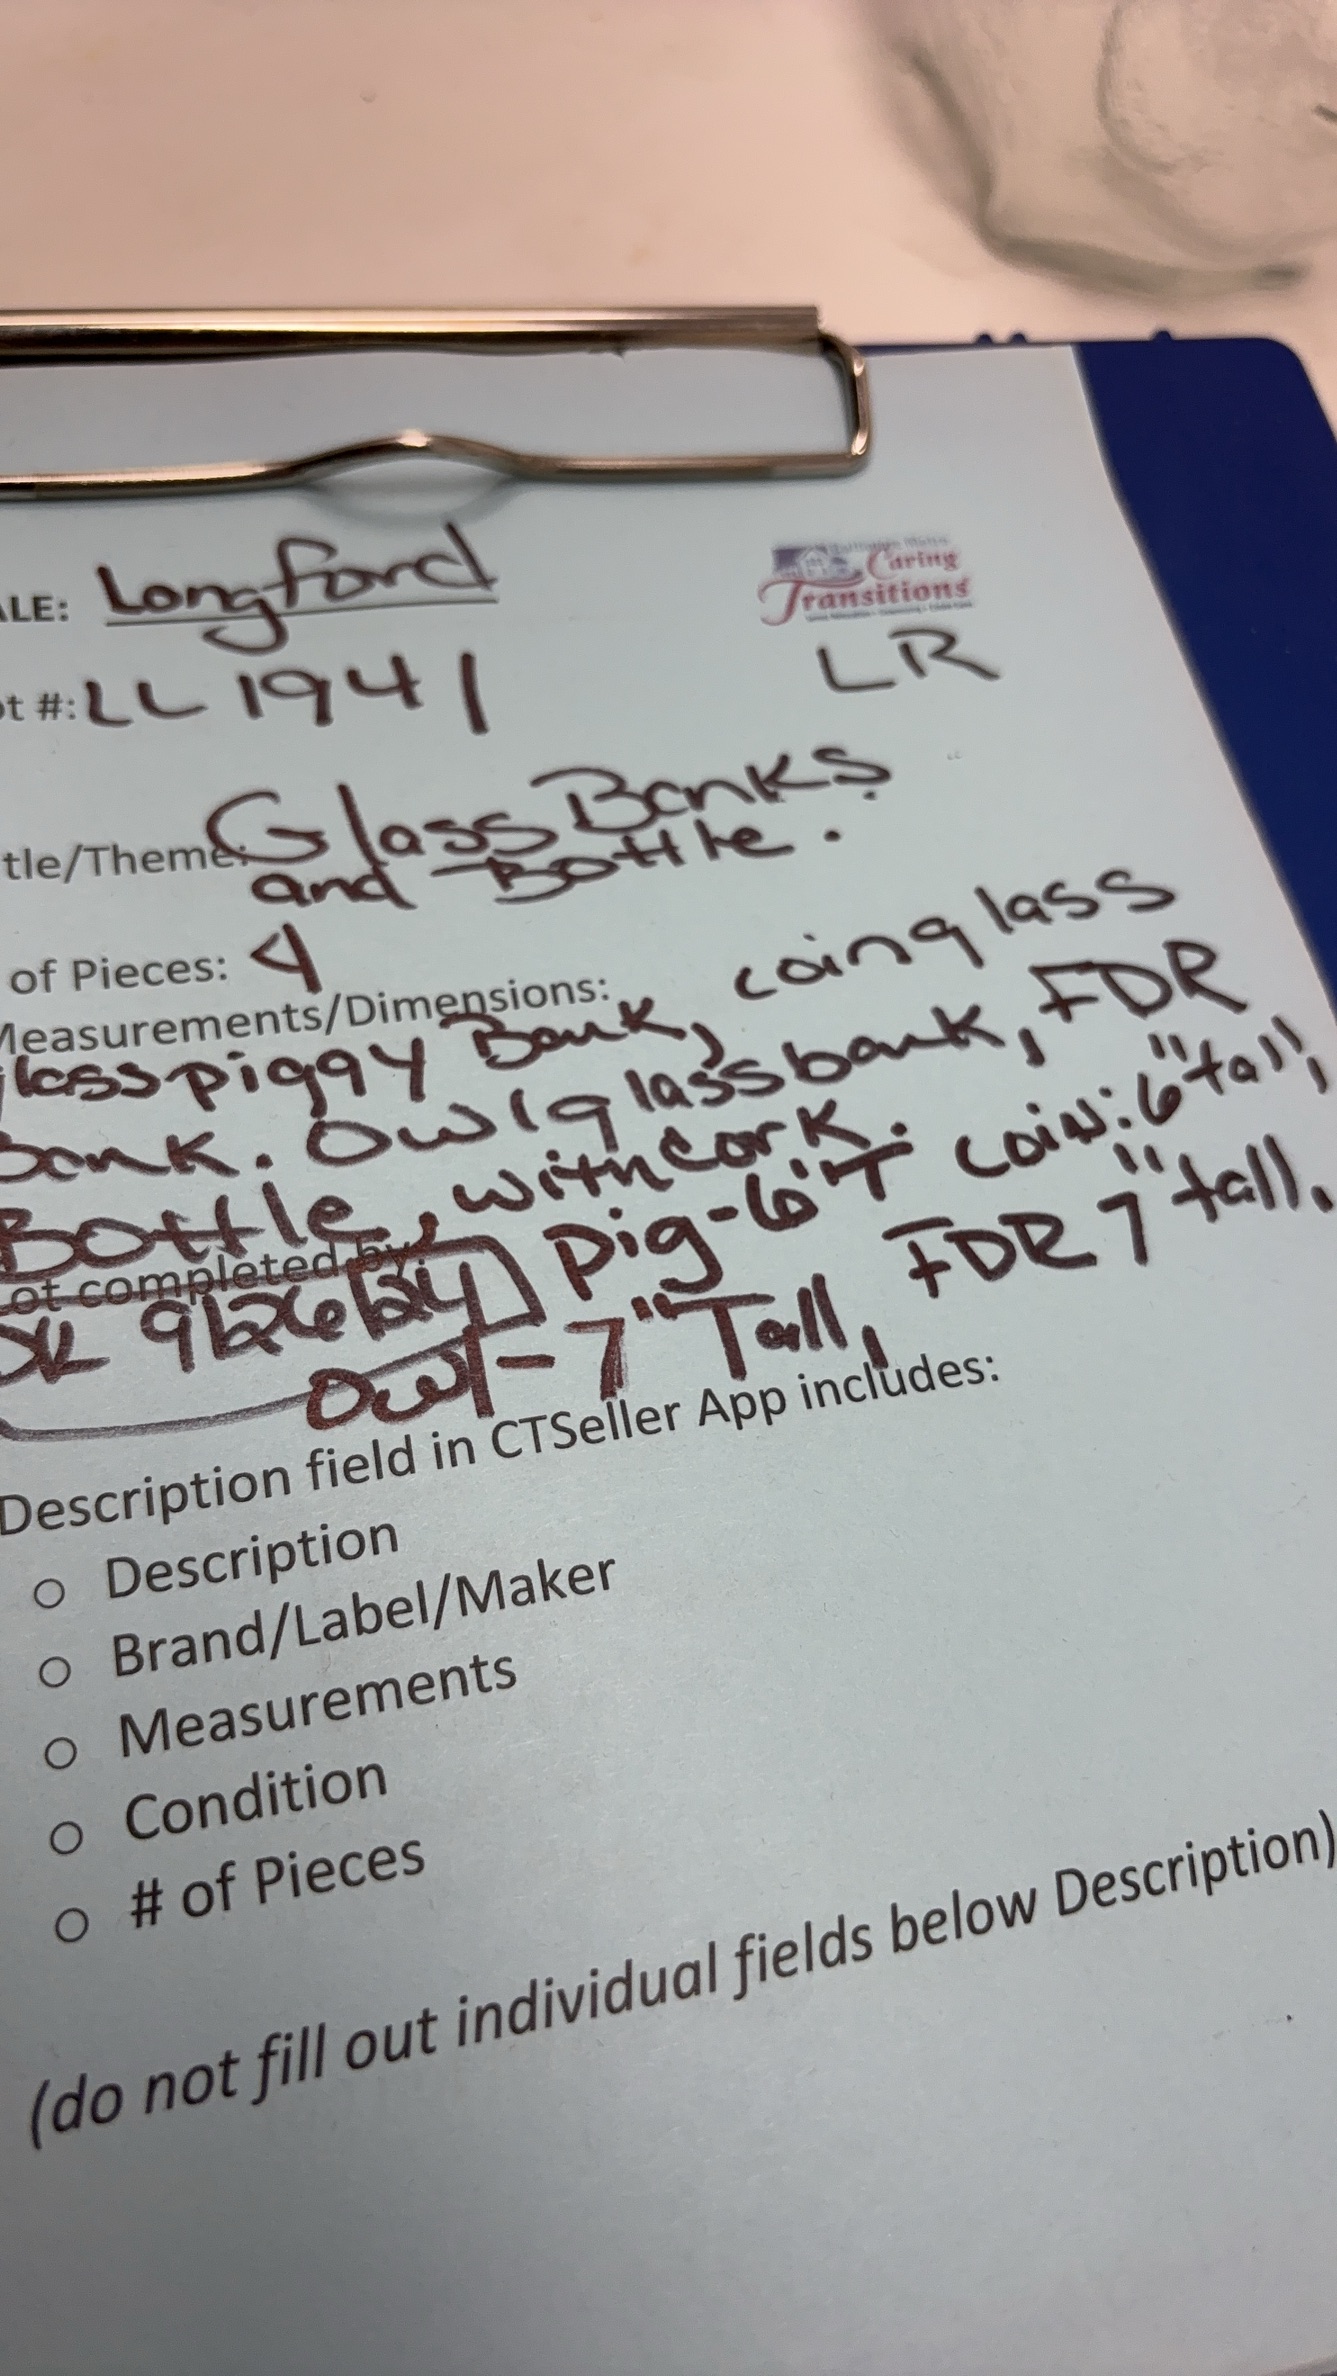 ALE: Longford
Caring
Transitions
ot #: LL 1941
LR
tle/Theme: Glass Banks
and Bottle.
of Pieces: 4
Measurements/Dimensions:
glass piggy Bank, coin glass
Bank. Owl glass bank, FDR
Bottle, with cork.
Pig-6"T coin: 6" tall,
Lot completed by:
9/26/24
Owl-7" Tall, FDR 7" tall.
Description field in CTSeller App includes:
○ Description
○ Brand/Label/Maker
○ Measurements
○ Condition
○ # of Pieces
(do not fill out individual fields below Description)